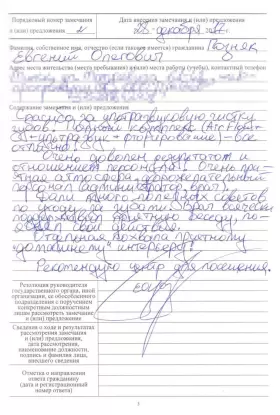 Порядковый номер замечания
и (или) предложения 4
Дата внесения замечания и (или) предложения
28 декабря
Фамилия, собственное имя, отчество (если таковое имеется) гражданина Позняк
Евгений Олегович
Адрес места жительства (места пребывания) и (или) места работы (учебы), контактный телефон
Содержание замечания и (или) предложения
Спасибо за ультразвуковую чистку
зубов. Полный комплекс (Air Flow+
+ фторирование) - все
отлично!
Очень доволен результатом и
отношением персонала! Очень при-
ятная атмосфера, доброжелательный
персонал (администратор, врач).
Дали много полезных советов
по уходу за зубами. Врач всячески
поддерживал приятную беседу, по-
яснял свои действия.
Отдельная похвала приятному
"домашнему" интерьеру!
Рекомендую центр для посещения.
Резолюция руководителя
государственного органа, иной
организации, ее обособленного
подразделения с поручением
конкретным должностным
лицам рассмотреть замечание
и (или) предложение
Сведения о ходе и результатах
рассмотрения замечания
и (или) предложения,
дата рассмотрения,
наименование должности,
подпись и фамилия лица,
внесшего сведения
Отметка о направлении
ответа гражданину
(дата и регистрационный
номер ответа)